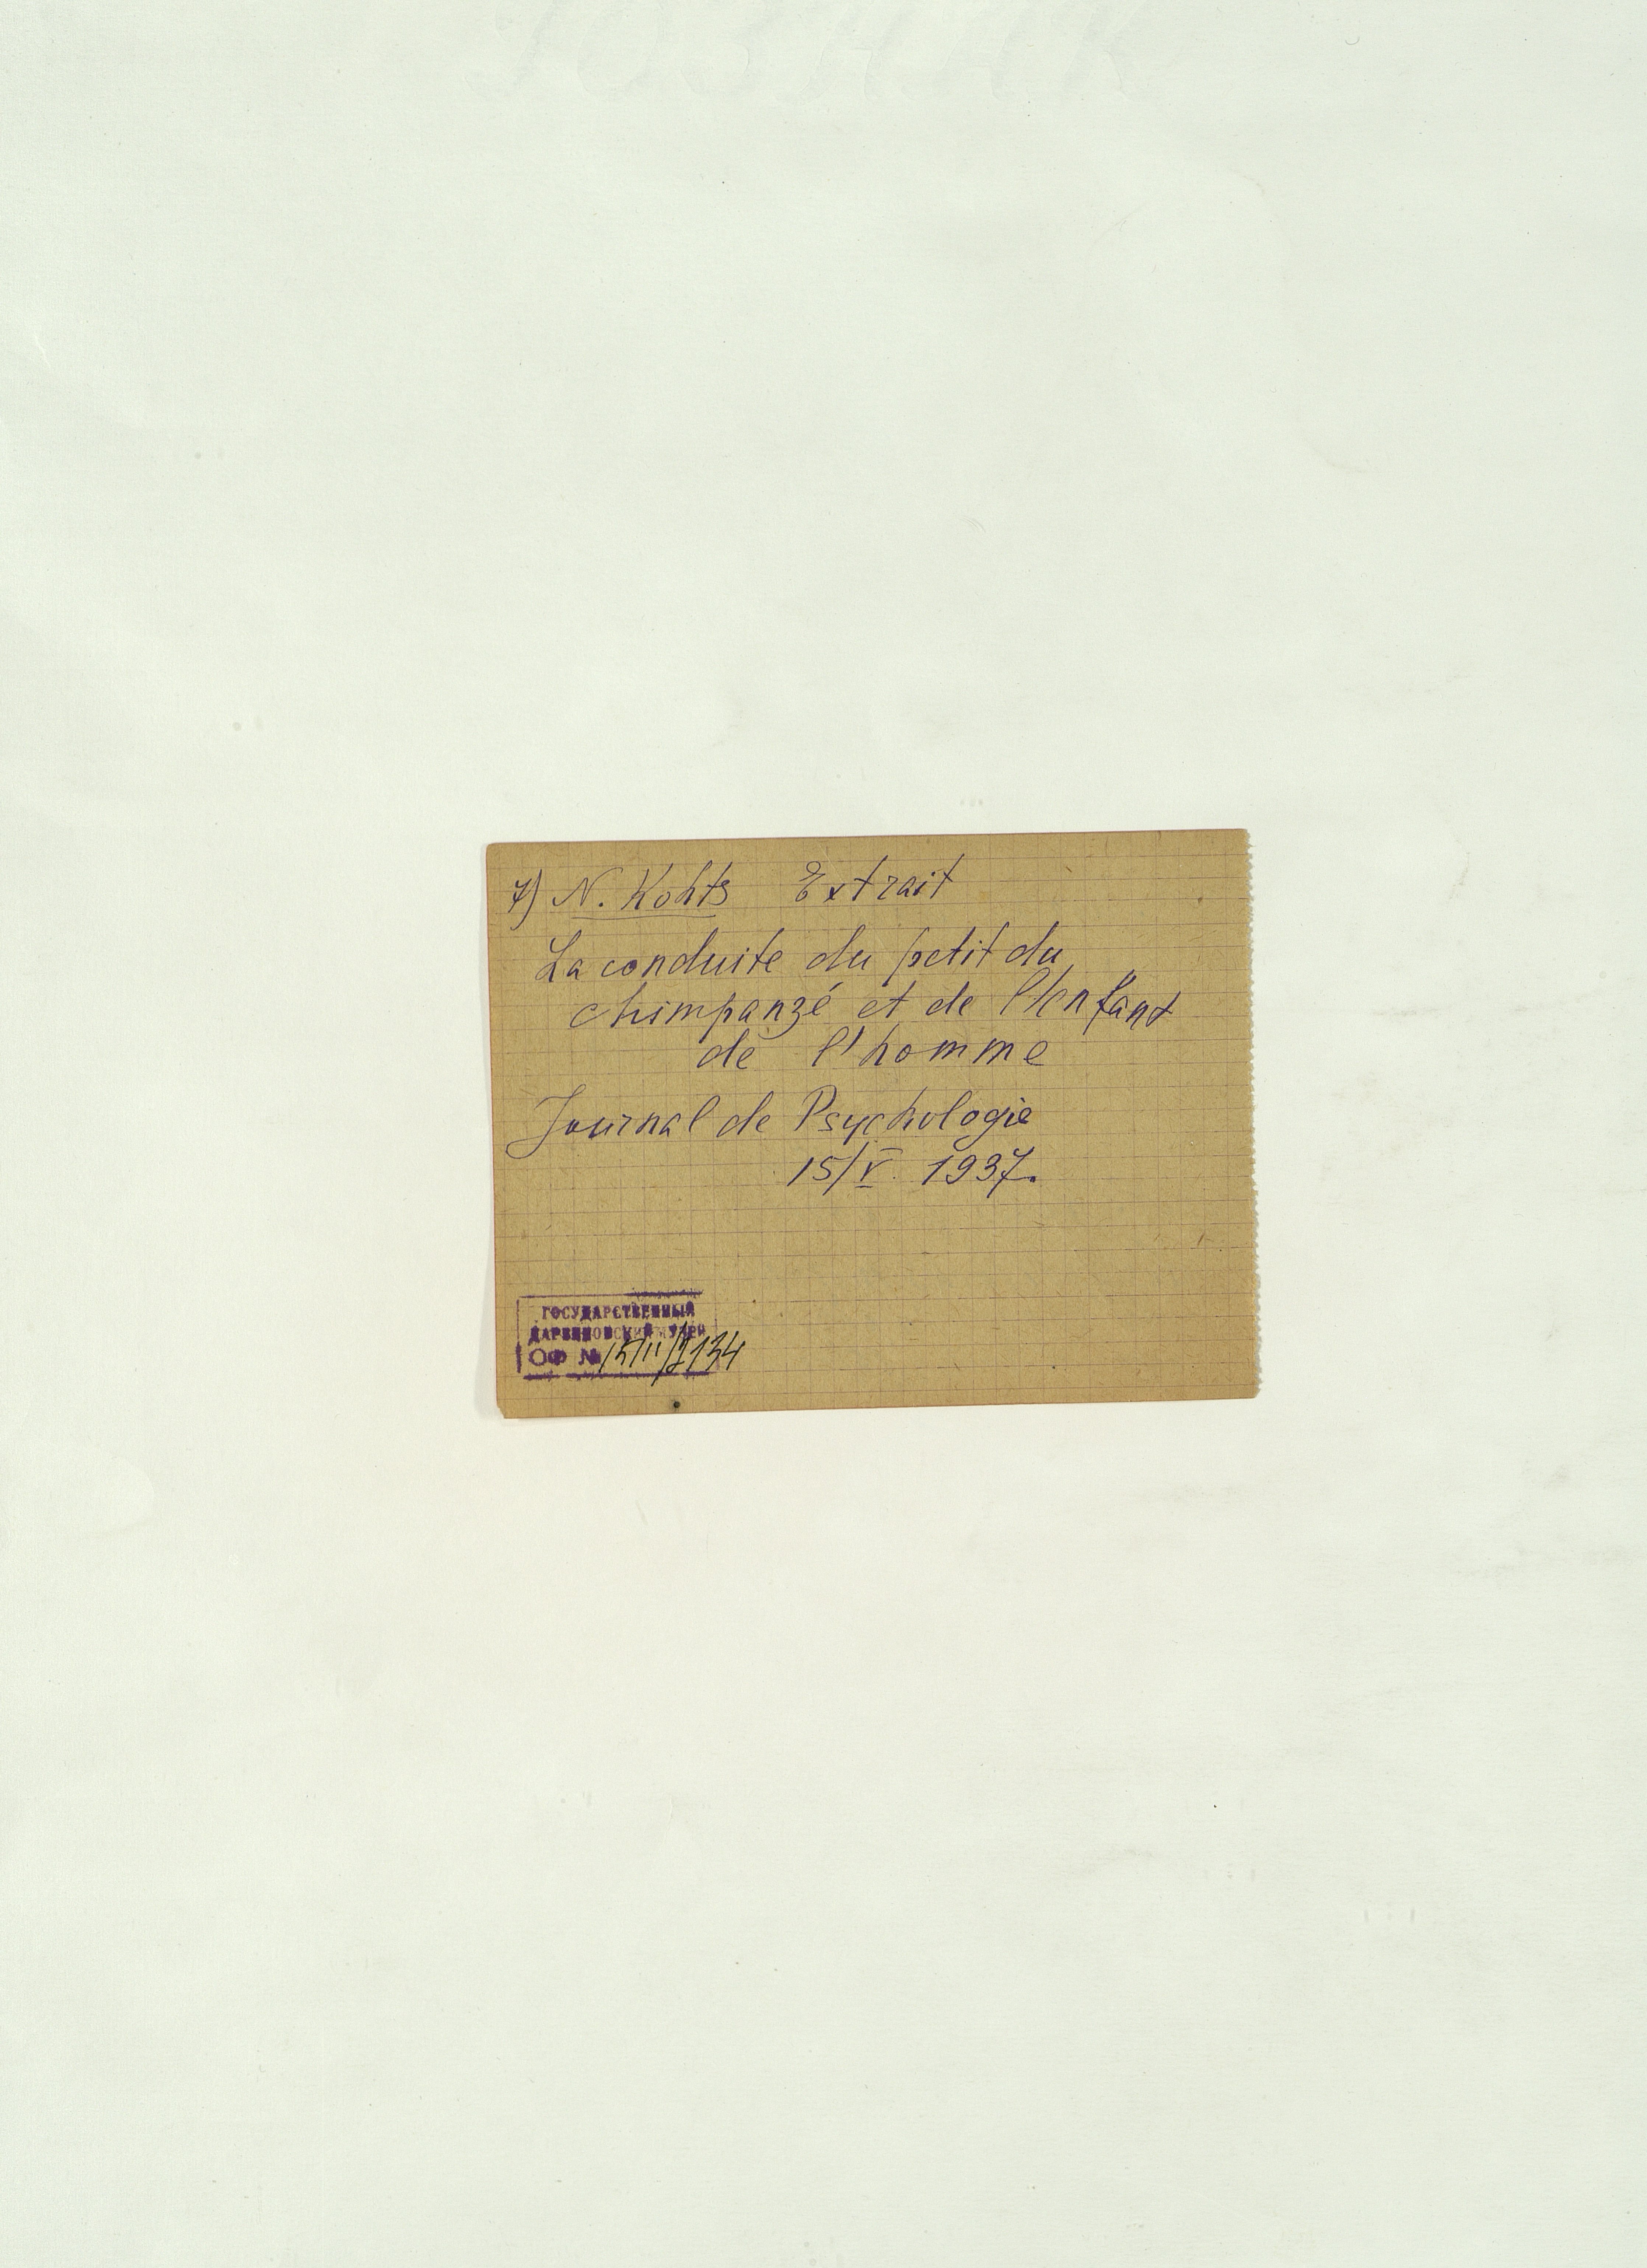 7) N. Kohts Extrait
La conduite du petit du
chimpanzé et de l'enfant
de l'homme
Journal de Psychologie
15/V. 1937.
ГОСУДАРСТВЕННЫЙ
ДАРВИНОВСКИЙ МУЗЕЙ
ОФ №